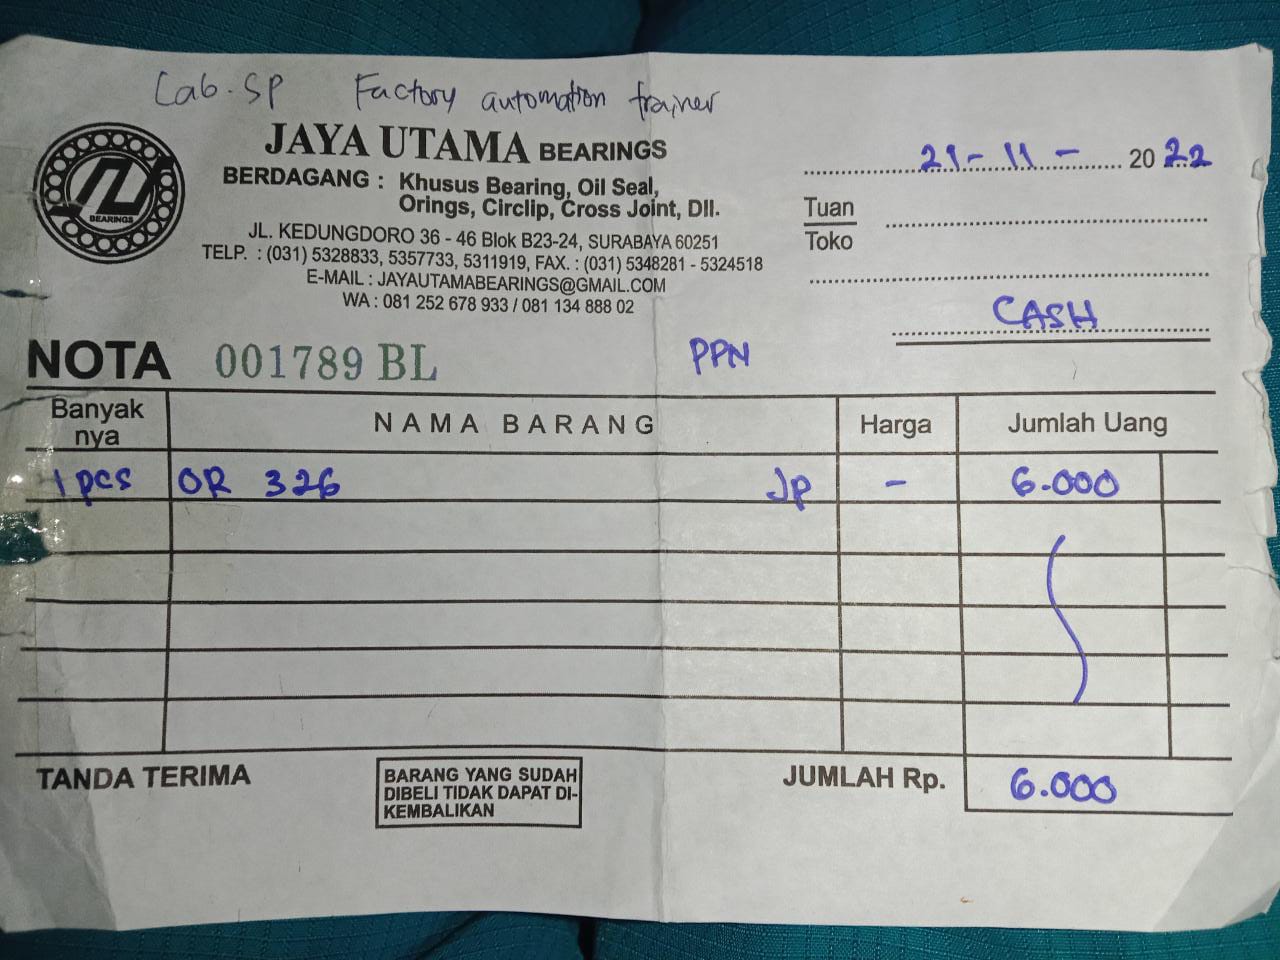 Lab. SP Factory automation trainer
JAYA UTAMA BEARINGS
BERDAGANG : Khusus Bearing, Oil Seal,
Orings, Circlip, Cross Joint, Dll.
JL. KEDUNGDORO 36 - 46 Blok B23-24, SURABAYA 60251
TELP. : (031) 5328833, 5357733, 5311919, FAX. : (031) 5348281 - 5324518
E-MAIL : JAYAUTAMABEARINGS@GMAIL.COM
WA : 081 252 678 933 / 081 134 888 02
JU
BEARINGS
21 - 11 - 2022
Tuan
Toko
CASH
NOTA 001789 BL PPN
Banyak nya NAMA BARANG Harga Jumlah Uang
1 pcs OR 326 Jp - 6.000
TANDA TERIMA
BARANG YANG SUDAH
DIBELI TIDAK DAPAT DI-
KEMBALIKAN
JUMLAH Rp. 6.000